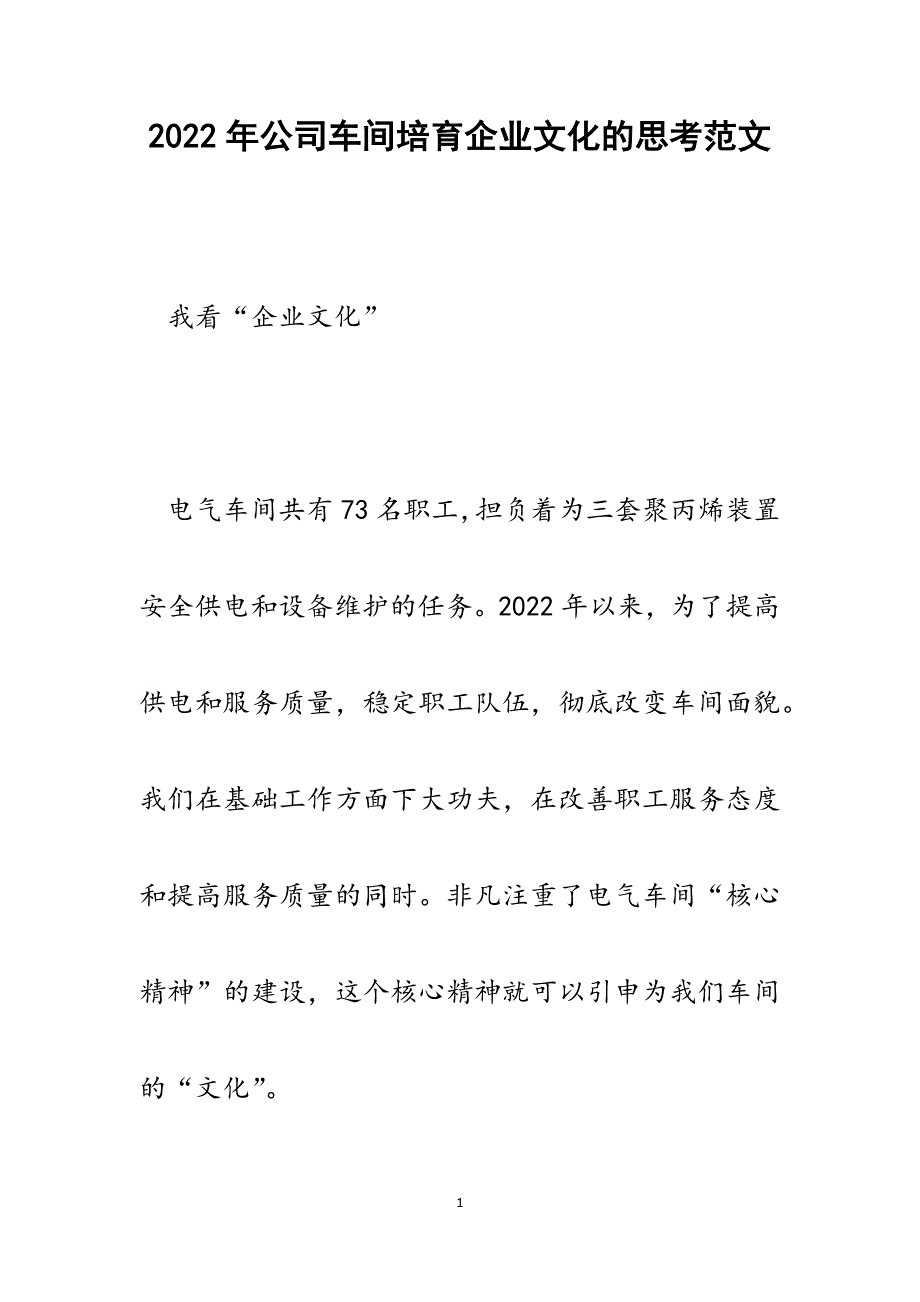 2022年公司车间培育企业文化的思考范文
我看“企业文化”
电气车间共有73名职工,担负着为三套聚丙烯装置
安全供电和设备维护的任务。2022年以来，为了提高
供电和服务质量，稳定职工队伍，彻底改变车间面貌。
我们在基础工作方面下大功夫，在改善职工服务态度
和提高服务质量的同时。非凡注重了电气车间“核心
精神”的建设，这个核心精神就可以引申为我们车间
的“文化”。
1